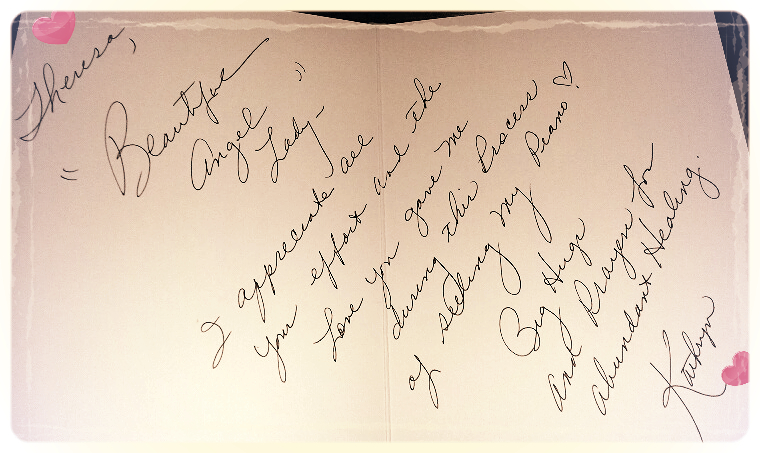 Theresa,
"Beautiful
Angel
Lady"
I appreciate all
your effort and the
love you gave me
during this Process
of selling my Piano! ♡
Big Hugs
And Prayers for
abundant Healing.
Kathryn